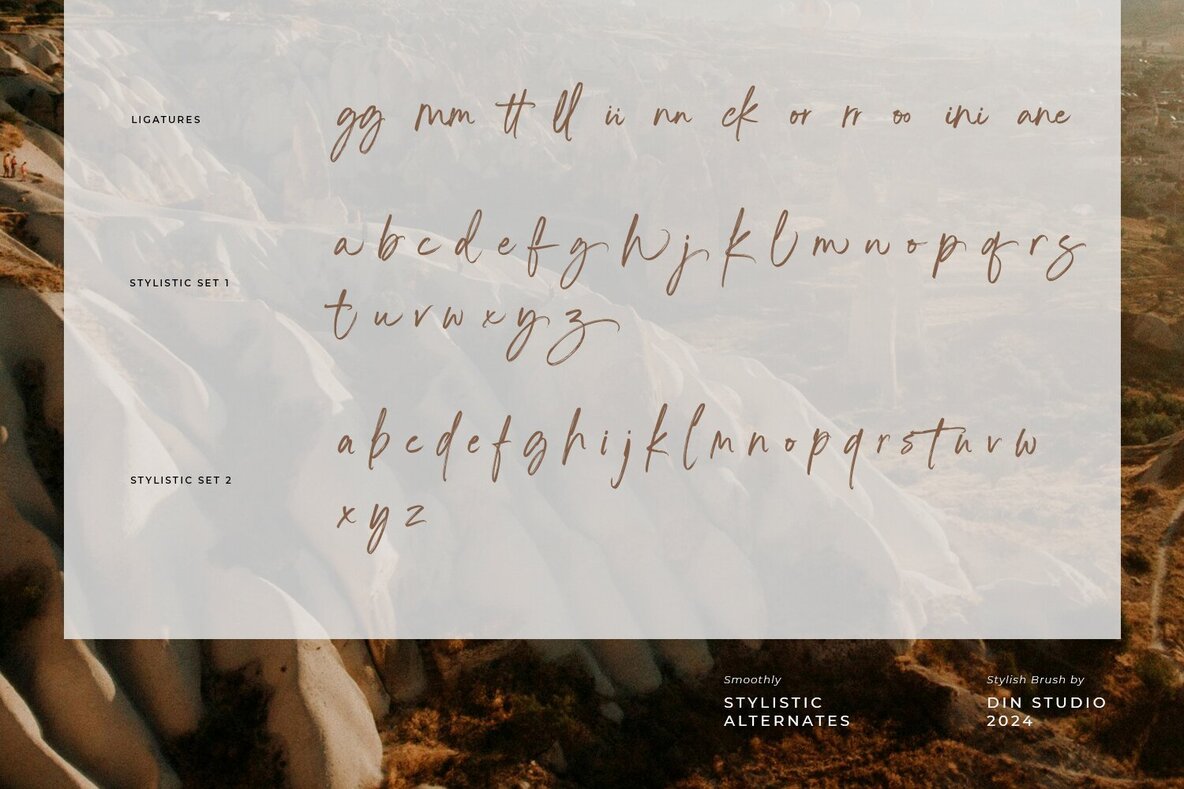 LIGATURES
gg mm tt ll ii nn ck or rr oo ini ane
STYLISTIC SET 1
a b c d e f g h j k l m n o p q r s
t u v w x y z
STYLISTIC SET 2
a b c d e f g h i j k l m n o p q r s t u v w
x y z
Smoothly
STYLISTIC
ALTERNATES
Stylish Brush by
DIN STUDIO
2024